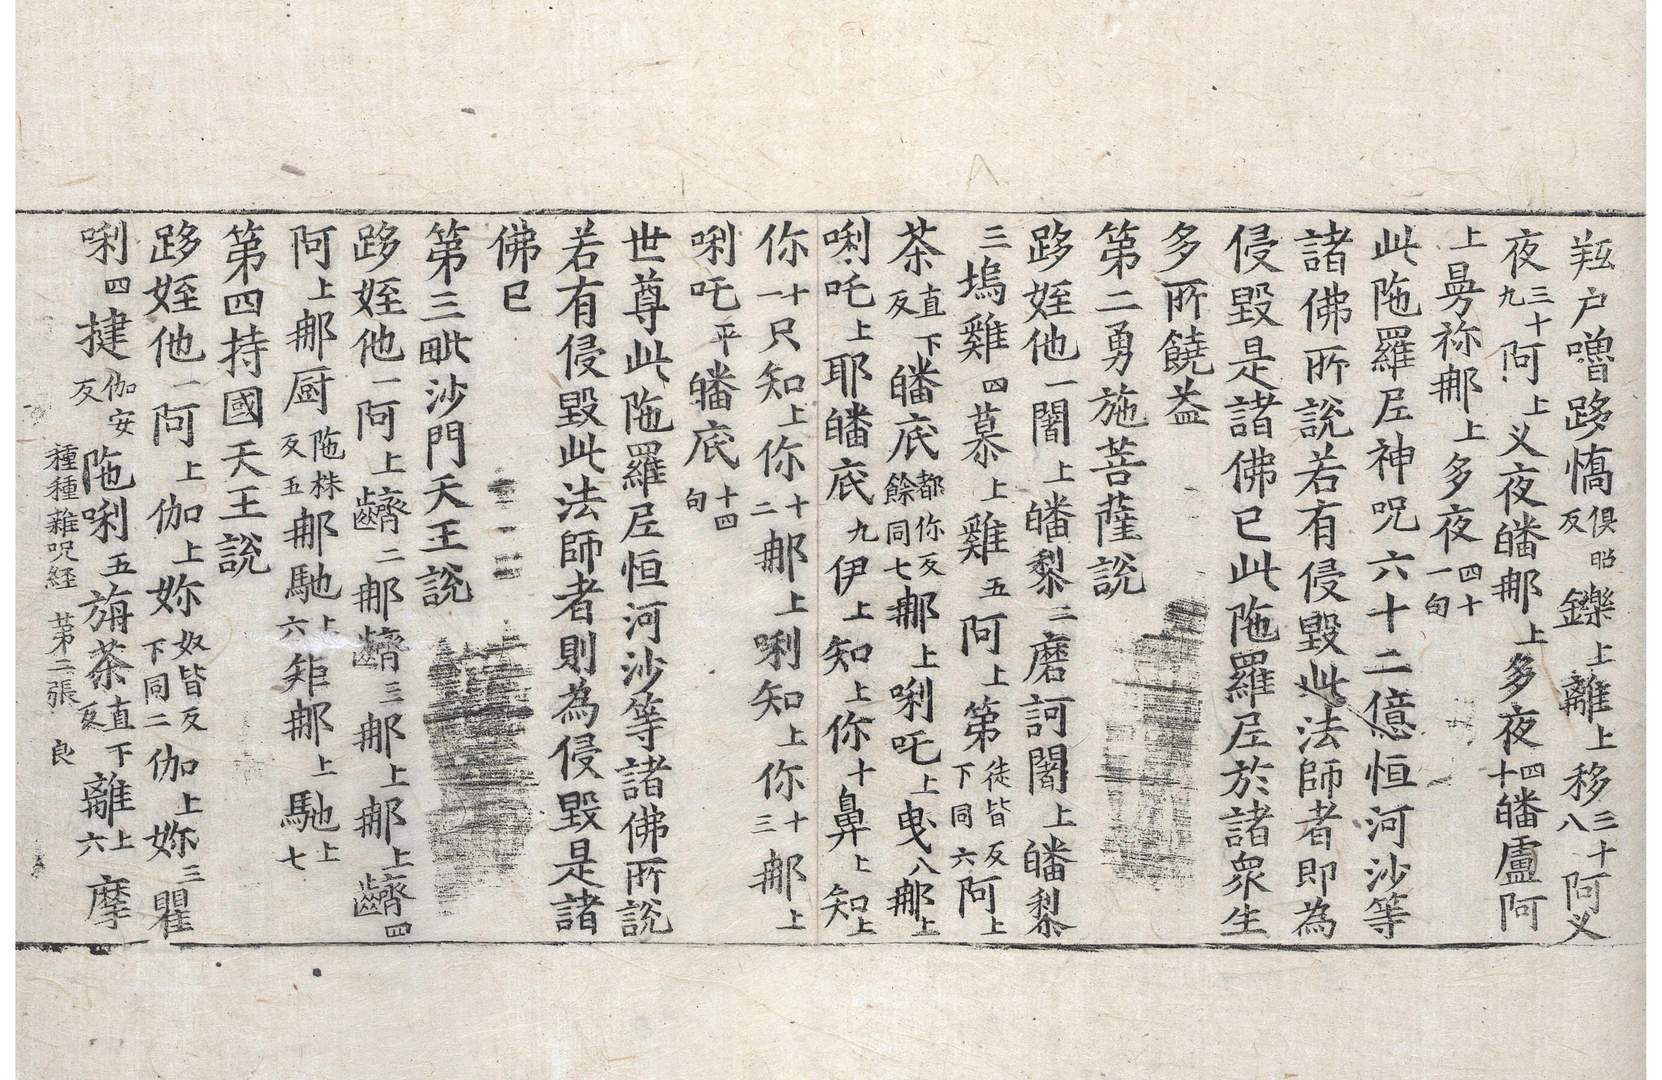 羖户嚕跢憍俱昭反鑠上離上移三十八阿义
夜三十九阿上义夜皤那上多夜四十皤盧阿
上㝵祢那上多夜四十一句
此陁羅尼神呪六十二億恒河沙等
諸佛所說若有侵毀此法師者即為
侵毀是諸佛已此陁羅尼於諸衆生
多所饒益
第二勇施菩薩說
跢姪他一闍上皤黎二磨訶闍上皤黎
三塢雞四慕上雞五阿上第徒皆反下同六阿上
荼直下反皤底都你反餘同七那上唎吒上曳八那上
唎吒上耶皤底九伊上知上你十鼻上知上
你十一只知上你十二那上唎知上你十三那上
唎吒平皤底十四句
世尊此陁羅尼恒河沙等諸佛所說
若有侵毀此法師者則為侵毀是諸
佛已
第三毗沙門天王說
跢姪他一阿上齾二那齾三那上那上齾四
阿上那厨陁株反五那馳上六矩那上馳上七
第四持國天王說
跢姪他一阿上伽上妳奴皆反下同二伽上妳三瞿
唎四揵伽安反陁唎五旃荼直下反離上六摩
種種雜呪経 第二張 良